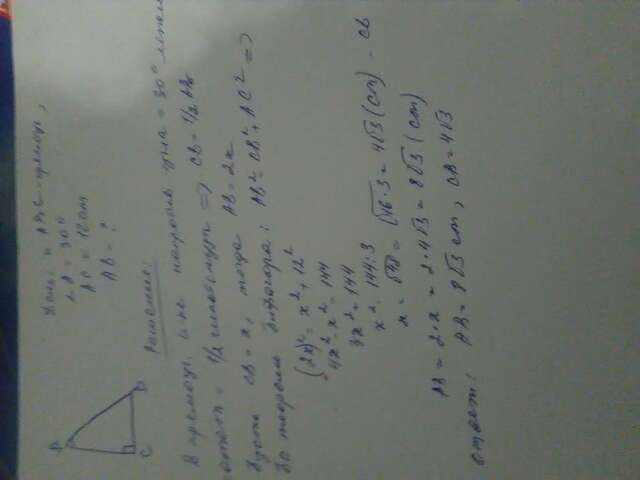 Дано: Δ ABC - прямоуг,
∠A = 30°
AC = 12 cm
AB = ?
A
C
B
Решение:
В прямоуг. Δ-ке напротив угла = 30° лежит
= 1/2 гипотенузы => CB = 1/2 AB
Пусть CB = x, тогда AB = 2x
По теореме Пифагора: AB² = CB² + AC² =>
(2x)² = x² + 12²
4x² - x² = 144
3x² = 144
x² = 144:3
x = √48 = √16·3 = 4√3 (cm) - CB
AB = 2·x = 2·4√3 = 8√3 (cm)
Ответ: AB = 8√3 cm, CB = 4√3